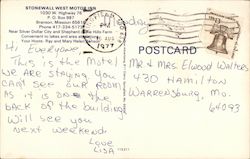 STONEWALL WEST MOTOR INN
1030 W. Highway 76
P. O. Box 987
Branson, Missouri 65616
Phone 417-334-5173
Near Silver Dollar City and Shepherd of the Hills Farm
Convenient to lakes and area attractions
Your Hosts: Ray and Mary Helen
Sunday
1977
POSTCARD
Hi Everyone,
This is the Motel
we are staying you
can't see our room
as it is on the
back of the building
Will see you
next weekend.
Love
Lisa
Mr & Mrs. Elwood Walters
430 Hamilton
Warrensburg, Mo.
64093